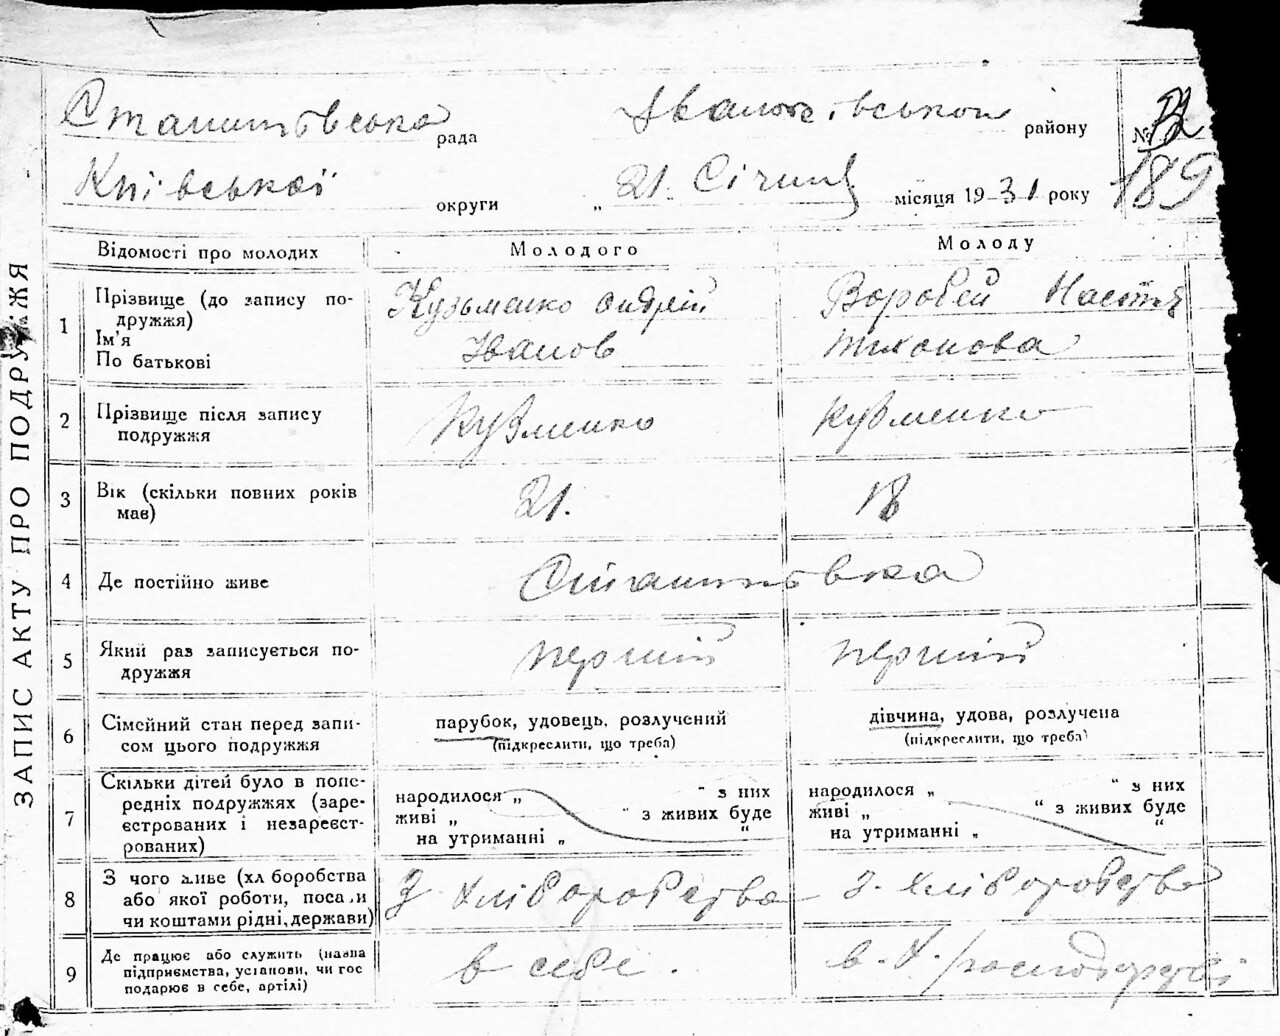 ЗАПИС АКТУ ПРО ПОДРУЖЖЯ
Станишовська рада району №
189
Київської округи „ 21. Січня місяця 1931 року
Відомості про молодих Молодого Молоду
1 Прізвище (до запису по-
дружжя)
Ім'я
По батькові
Кузьменко Андрій
Іванов
Воробей Настя
Тихонова
2 Прізвище після запису
подружжя
Кузменко Кузменко
3 Вік (скільки повних років
мав)
21. 18
4 Де постійно живе
Станишовка
5 Який раз записується по-
дружжя
перший перший
6 Сімейний стан перед запи-
сом цього подружжя
парубок, удовець, розлучений
(підкреслити, що треба)
дівчина, удова, розлучена
(підкреслити, що треба)
7 Скільки дітей було в попе-
редніх подружжях (заре-
єстрованих і незареєст-
рованих)
народилося „ “ з них
живі „ “ з живих буде
на утриманні „ “
народилося „ “ з них
живі „ “ з живих буде
на утриманні „ “
8 З чого живе (хліборобства
або якої роботи, посади
чи коштами рідні, держави)
З хліборобства з. хліборобства
9 Де працює або служить (назва
підприємства, установи, чи гос
подарює в себе, артілі)
в себе. в.